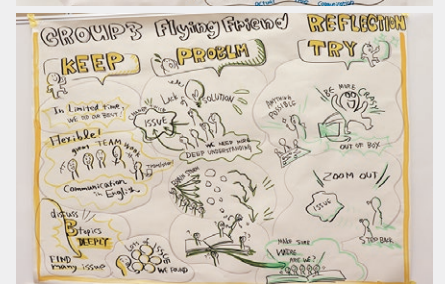 GROUP3 Flying Friend REFLECTION
KEEP
PROBLM
TRY
In Limited time,
WE DID OUR BEST
Flexible!
TEAM
Communication
in English
discuss
3 topics
DEEPLY
FIND
many issue
WE FOUND
Lack of SOLUTION
ISSUE
WE NEED MORE
DEEP UNDERSTANDING
ANYTHING
POSSIBLE
BE MORE CRAZY
OUT OF BOX
ZOOM OUT
ISSUE
STEP BACK
MAKE SURE
WHERE
ARE WE?